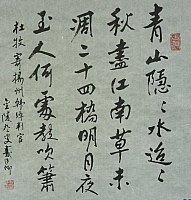 青山隐〻水迢〻
秋尽江南草未
凋二十四橋明月夜
玉人何處教吹簫
杜牧寄揚州韓綽判官